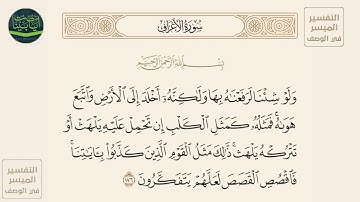 التفسير
الميسر
في الوصف
سُورَةُ الأَعْرَافِ
بِسْمِ اللَّهِ الرَّحْمَٰنِ الرَّحِيمِ
وَلَوْ شِئْنَا لَرَفَعْنَٰهُ بِهَا وَلَٰكِنَّهُۥٓ أَخْلَدَ إِلَى ٱلْأَرْضِ وَٱتَّبَعَ
هَوَىٰهُ ۚ فَمَثَلُهُۥ كَمَثَلِ ٱلْكَلْبِ إِن تَحْمِلْ عَلَيْهِ يَلْهَثْ أَوْ
تَتْرُكْهُ يَلْهَث ۚ ذَّٰلِكَ مَثَلُ ٱلْقَوْمِ ٱلَّذِينَ كَذَّبُوا۟ بِـَٔايَٰتِنَا ۚ
فَٱقْصُصِ ٱلْقَصَصَ لَعَلَّهُمْ يَتَفَكَّرُونَ ١٧٦
التفسير
الميسر
في الوصف